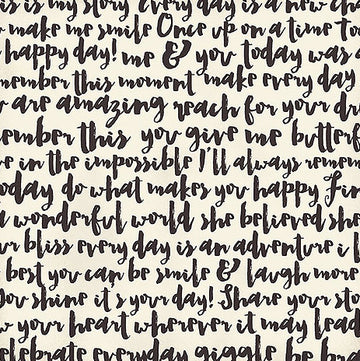 is is my story Every day is a new cha
make me smile Once up on a time to
happy day! me & you today was
member this moment make every day
are amazing reach for your dr
ember this you give me butterf
in the impossible I'll always remem
oday do what makes you happy Fin
wonderful world she believed sh
ur bliss every day is an adventure i l
best you can be smile & laugh more
You shine it's your day! Share your sto
your heart wherever it may lead
elebrate everyday giggle be b